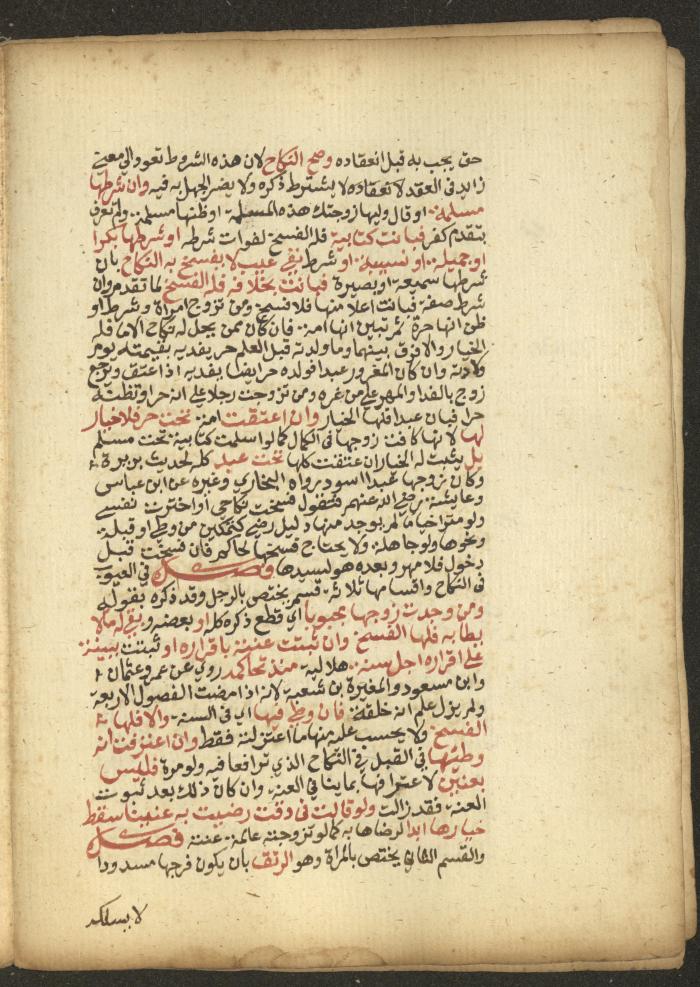 حق يجب به قبل انعقاده وصح النكاح لان هذه الشروط تعود الى معنى
زايد في العقد لا تعقاده لا يشترط ذكره ولا يضر الجهل به فيه وان شرطها
مسلمة او قال وليها زوجتك هذه المسلمة او ظنها مسلمة ولم تعرف
بتقدم كفر فبانت كتابية فله الفسخ لفوات شرطه او شرطها بكرا
او جميلة او نسيبة او شرط نفي عيب لا يفسخ به النكاح بان
شرطها سميعة او بصيرة فبانت بخلافه فله الفسخ لما تقدم وان
شرط صفة فبانت اعلا منها فلا فسخ ومن تزوج امراة وشرط او
ظن انها حرة ثم تبين انها امة فان كان ممن يحل له نكاح الاما فله
الخيار والا فرق بينهما وما ولدته قبل العلم حر يفديه بقيمته يوم
ولادته وان كان المغرور عبدا فولده حر ايضا يفديه اذا عتق ويرجع
زوج بالفدا والمهر على من غره ومن تزوجت رجلا على انه حر او تظنه
حرا فبان عبدا فلها الخيار وان اعتقت امة تحت حر فلا خيار
لها لانها كافت زوجها في الكمال كما لو اسلمت كتابية تحت مسلم
بل يثبت لها الخيار ان عتقت كلها تحت عبد كله لحديث بريرة
وكان زوجها عبدا اسود رواه البخاري وغيره عن ابن عباس
وعايشة رضي الله عنهم فتقول فسخت نكاحي او اخترت نفسي
ولو متراخيا ما لم يوجد منها دليل رضي كتمكين من وطي او قبلة
ونحوها ولو جاهلة ولا يحتاج فسخها لحاكم فان فسخت قبل
دخول فلا مهر وبعده هو لسيدها فصل في العيوب
في النكاح واقسامها ثلاثة قسم يختص بالرجل وقد ذكره بقوله
ومن وجدت زوجها مجبوبا اي قطع ذكره كله او بعضه وبقي له مالا
يطا به فلها الفسخ وان ثبتت عنته باقراره او ثبتت ببينة
على اقراره اجل سنة هلالية منذ تحاكمه روي عن عمر وعثمان
وابن مسعود والمغيرة بن شعبة لانه اذا مضت الفصول الاربعة
ولم يزل علم انه خلقة فان وطي فيها اي في السنة والا فلها
الفسخ ولا يحسب عليه منها ما اعتزلته فقط وان اعترفت انه
وطئها في القبل في النكاح الذي ترافعا فيه ولو مرة فليس
بعنين لاعترافها بما ينافي العنة وان كان ذلك بعد ثبوت
العنة فقد زالت ولو قالت في وقت رضيت به عنينا سقط
خيارها ابدا لرضاها به كما لو تزوجته عالمة عنته فصل
والقسم الثاني يختص بالمراة وهو الرتق بان يكون فرجها مسدودا
لا يسلكه